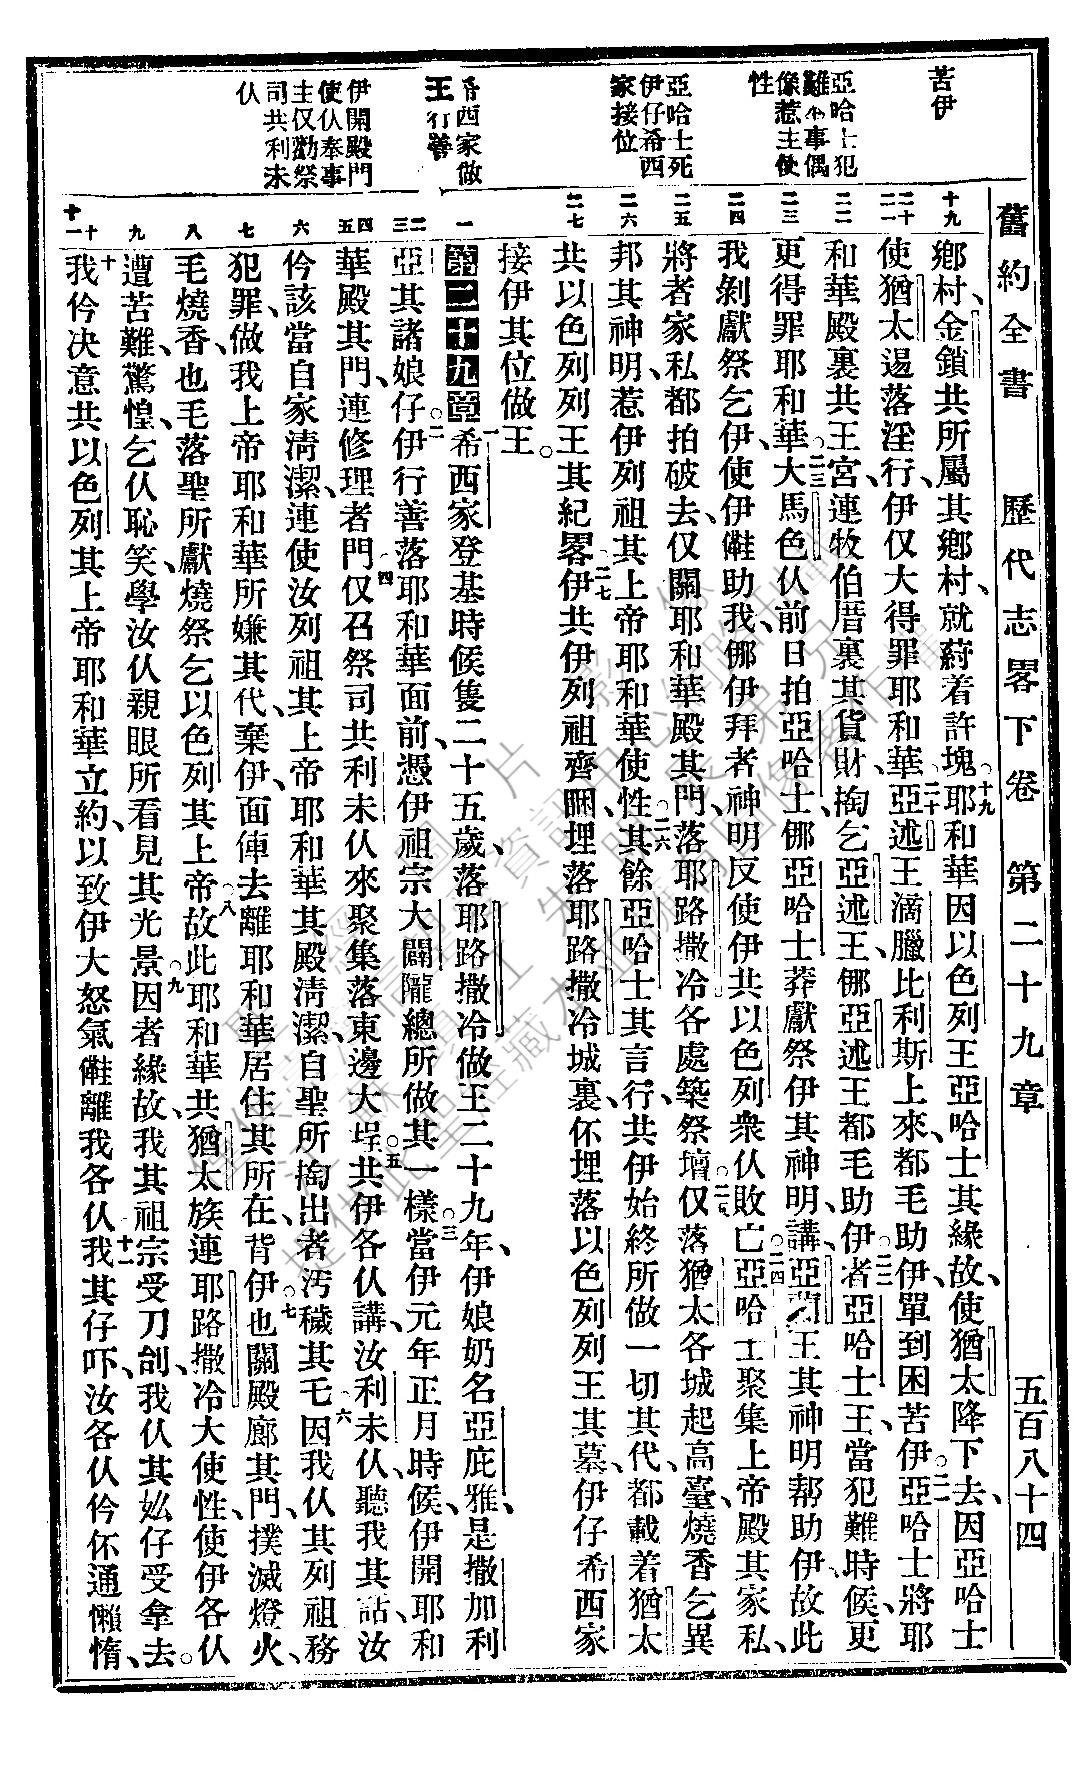 舊約全書　歷代志畧下卷　第二十九章　五百八十四
苦伊
亞哈士犯
難事偶
像惹主使
性
亞哈士死
伊仔希西
家接位
希西家做
王行善
伊開殿門
使仫奉事
主仅勸祭
司共利未
仫
十九
二十
二一
二二
二三
二四
二五
二六
二七
一
二
三
四
五
六
七
八
九
十
十一
鄉村、金鎖共所屬其鄉村、就葤着許塊。十九耶和華因以色列王亞哈士其緣故、使猶太降下去、因亞哈士
使猶太逿落淫行、伊仅大得罪耶和華。二十亞述王滴臘比利斯上來、都毛助伊、單到困苦伊。二一亞哈士將耶
和華殿裏共王宮、連牧伯厝裏其貨財、掏乞亞述王、㑚亞述王都毛助伊者。二二亞哈士王當犯難時候、更
更得罪耶和華。二三大馬色仫前日拍亞哈士、㑚亞哈士莽獻祭伊其神明、講、亞蘭王其神明帮助伊、故此
我剝獻祭乞伊、使伊𣍐助我、㑚伊拜者神明反使伊共以色列衆仫敗亡。二四亞哈士聚集上帝殿其家私、
將者家私都拍破去、仅關耶和華殿其門、落耶路撒冷各處築祭壇。二五仅落猶太各城起高臺、燒香乞異
邦其神明、惹伊列祖其上帝耶和華使性。二六其餘亞哈士其言行、共伊始終所做一切其代、都載着猶太
共以色列列王其紀畧。二七伊共伊列祖齊睏、埋落耶路撒冷城裏、伓埋落以色列列王其墓、伊仔希西家
接伊其位做王。
第二十九章　一希西家登基時候隻二十五歲、落耶路撒冷做王二十九年、伊娘奶名亞庇雅、是撒加利
亞其諸娘仔。二伊行善落耶和華面前、憑伊祖宗大闢隴總所做其一樣。三當伊元年正月時候、伊開耶和
華殿其門、連修理者門。四仅召祭司共利未仫來、聚集落東邊大埕。五共伊各仫講、汝利未仫、聽我其話、汝
仱該當自家清潔、連使汝列祖其上帝耶和華其殿清潔、自聖所掏出者汚穢其乇。六因我仫其列祖務
犯罪、做我上帝耶和華所嫌其代、棄伊、面俥去離耶和華居住其所在、背伊。七也關殿廊其門、撲滅燈火、
毛燒香、也毛落聖所獻燒祭乞以色列其上帝。八故此耶和華共猶太族連耶路撒冷大使性、使伊各仫
遭苦難、驚惶、乞仫恥笑、學汝仫親眼所看見其光景。九因者緣故、我其祖宗受刀創、我仫其妷仔受拿去。
十我仱決意共以色列其上帝耶和華立約、以致伊大怒氣𣍐離我各仫。十一我其仔吓、汝各仫仱伓通懶惰、